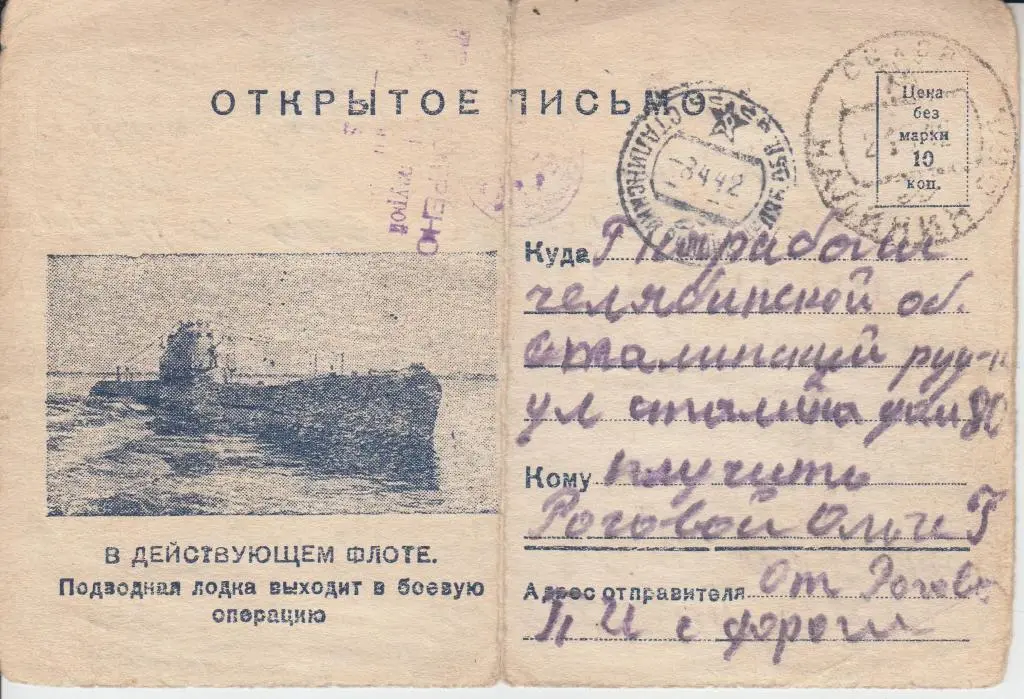 ОТКРЫТОЕ ПИСЬМО
Цена
без
марки
10
коп.
-8 4 42
Куда
челябинской об.
Сталинский руд-к
ул сталина дом 80
Кому плучить
Роговой Ольги Г
Адрес отправителя От Рогова
П И с дороги
В ДЕЙСТВУЮЩЕМ ФЛОТЕ.
Подводная лодка выходит в боевую
операцию